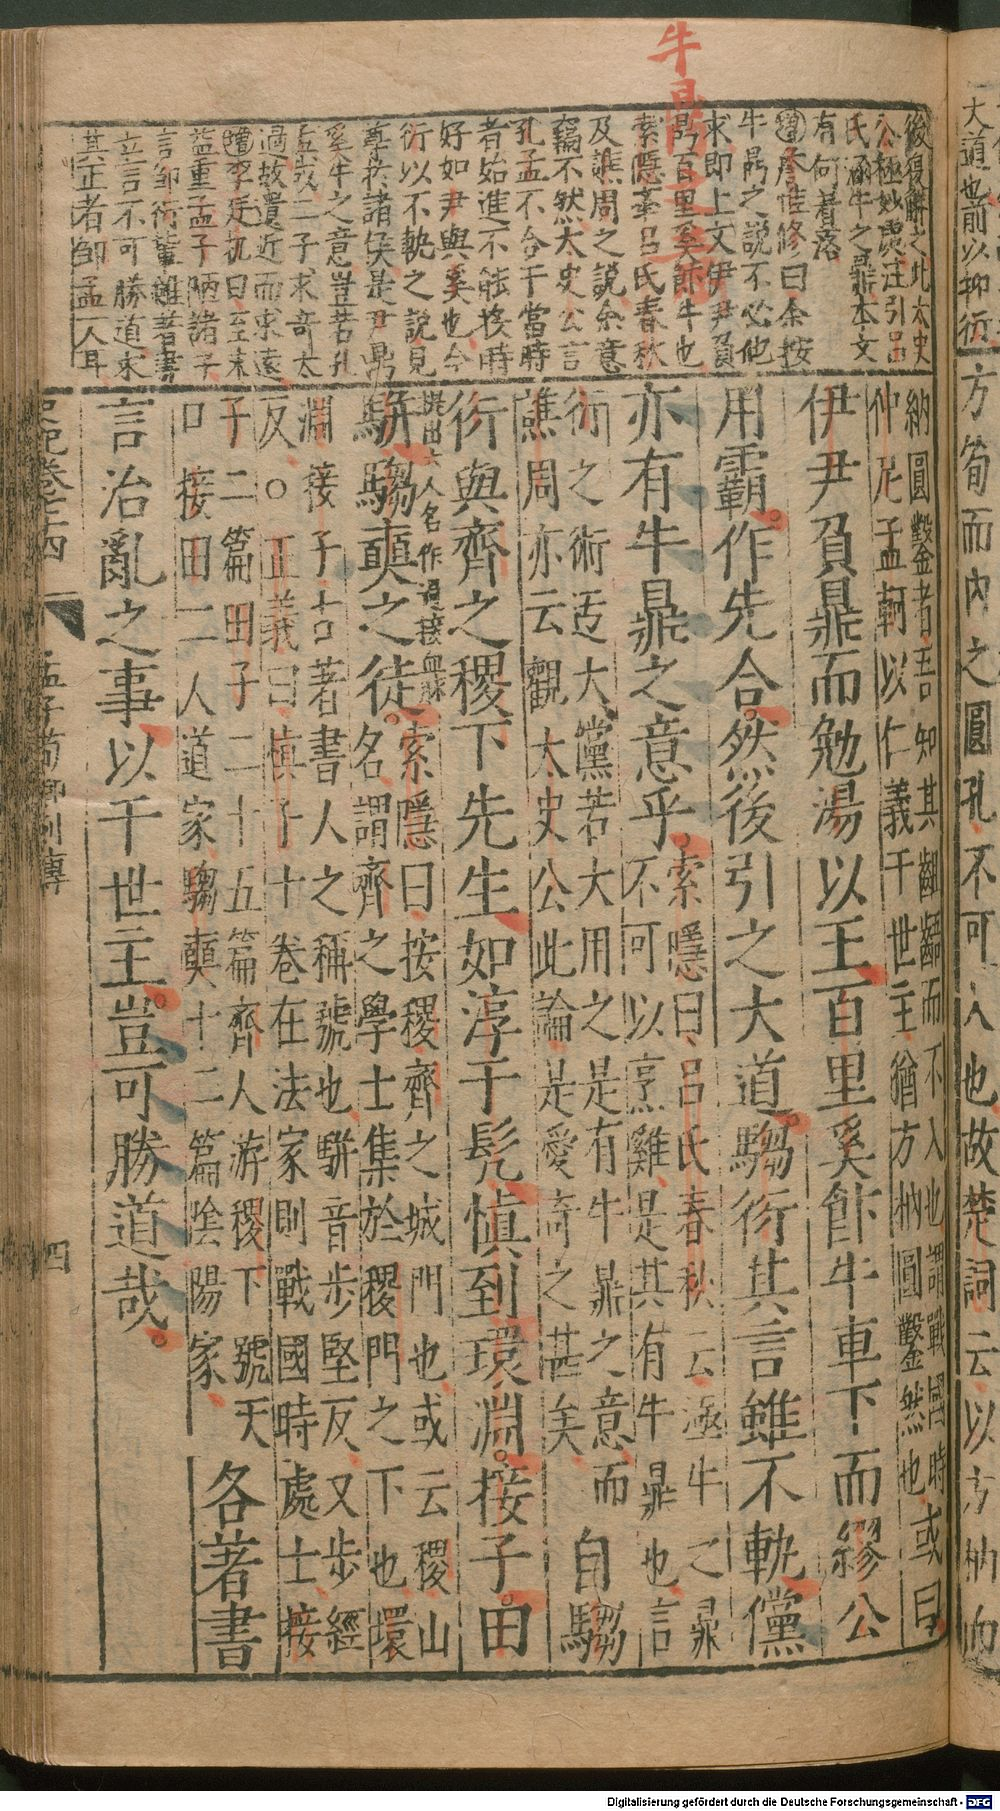 大道也前以抑衍
方筍而內之圓孔不可入也故楚詞云以方枘
牛鼎之意
後復解之此太史
公極妙處注引呂
氏涵牛之鼎本文
有何著落
惟修曰余按
牛鼎之說不必他
求即上文伊尹負
鼎百里奚飰牛也
索隱牽呂氏春秋
及譙周之說余意
竊不然太史公言
孔孟不合于當時
者始進不能投時
好如尹與奚也今
衍以不軌之說見
尊於諸侯是尹鼎
奚牛之意豈若孔
孟哉二子求奇太
過故遺近而求遠
李廷机曰至末
益重孟子陋諸子
言騶衍輩雖著書
立言不可勝道求
其正者即孟一人耳
納圓鑿者吾知其齟齬而不入也謂戰國時
仲尼孟軻以仁義干世主猶方枘圓鑿然也
或曰
伊尹負鼎而勉湯以王百里奚飰牛車下而繆公
用霸。作先合。然後引之大道。騶衍其言雖不軌儻
亦有牛鼎之意乎。
索隱曰呂氏春秋云涵牛之鼎
不可以烹雞是其有牛鼎也言
衍之術迃大儻若大用之是有牛鼎之意而
譙周亦云觀太史公此論是愛奇之甚矣
自騶
衍與齊之稷下先生如淳于髡慎到環淵。接子。田
提出六人名作過接血脉
駢。騶奭之徒。
索隱曰按稷齊之城門也或云稷山
名謂齊之學士集於稷門之下也環
淵接子古著書人之稱號也駢音步堅反又步經
反○正義曰慎子十卷在法家則戰國時處士接
子二篇田子二十五篇齊人游稷下號天
口接田二人道家騶奭十二篇陰陽家
各著書
言治亂之事以干世主。豈可勝道哉。
史記卷七十四
孟子荀卿列傳
四
Digitalisierung gefördert durch die Deutsche Forschungsgemeinschaft - DFG